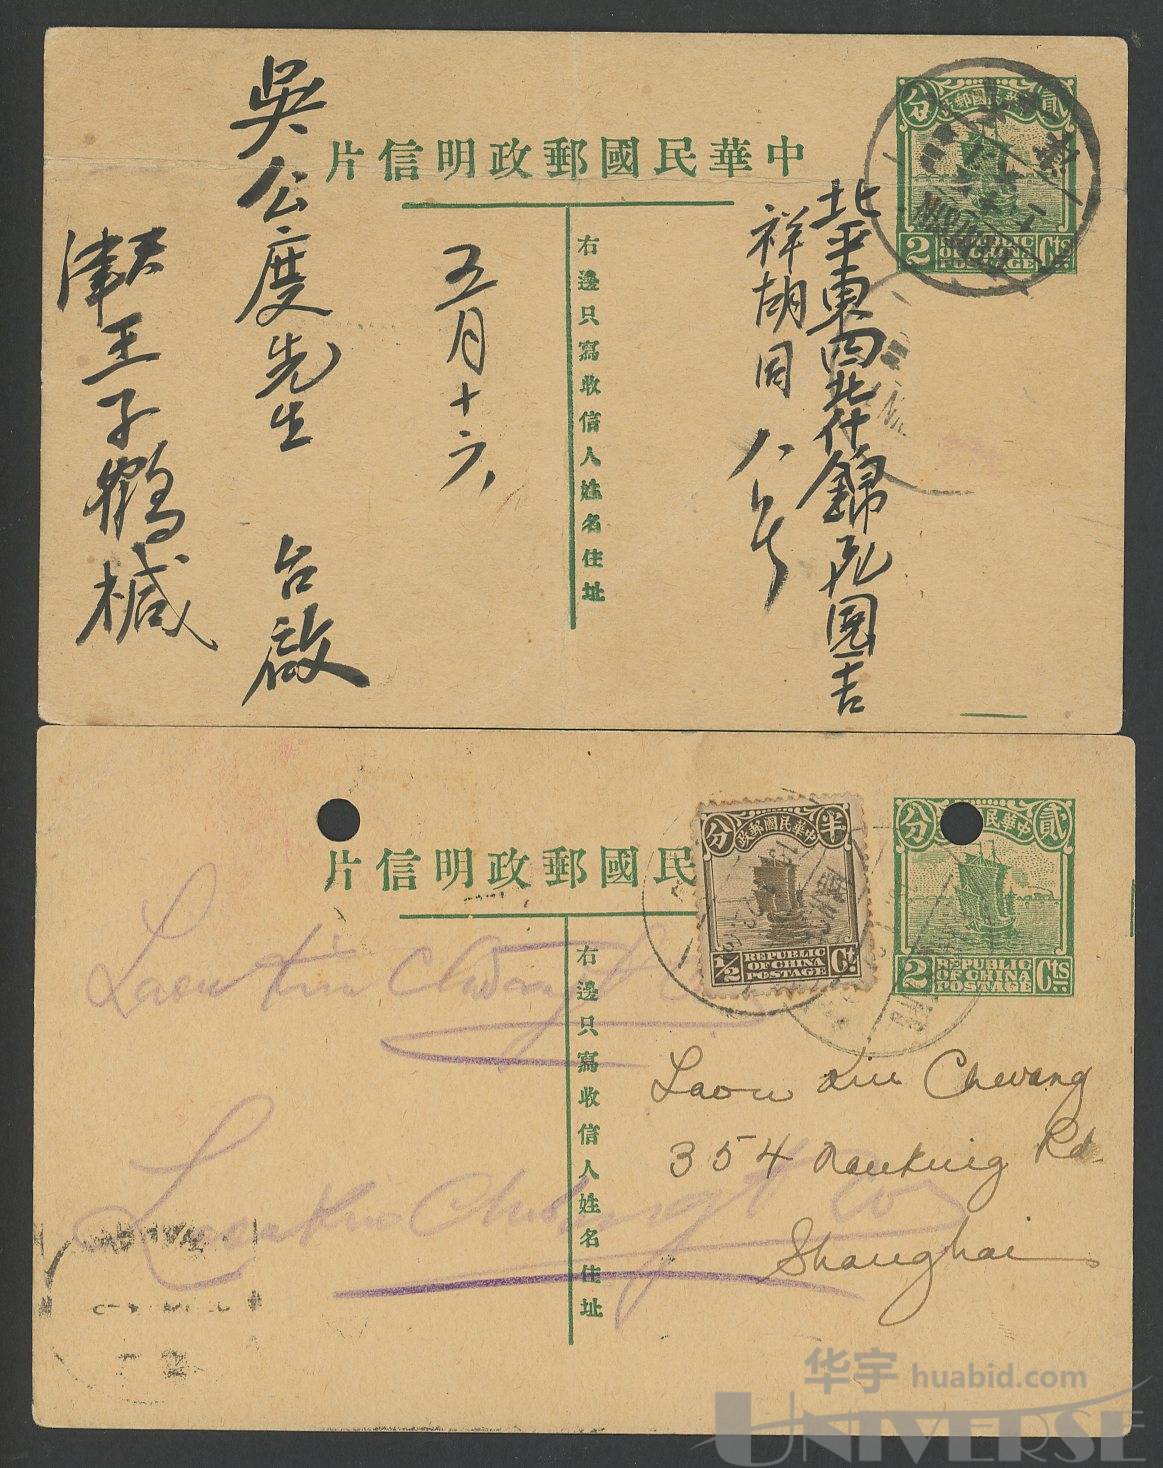 中華民國郵政明信片
右邊只寫收信人姓名住址
貳分
中華民國郵政
2 Cts.
REPUBLIC
OF CHINA
POSTAGE
北平東四北什錦花園吉
祥胡同八号
五月十六
吳公度先生 台啟
天津王子鶴椷
民國郵政明信片
右邊只寫收信人姓名住址
半分
中華民國郵政
1/2 Ct.
REPUBLIC
OF CHINA
POSTAGE
貳分
2 Cts.
REPUBLIC
OF CHINA
POSTAGE
Laou Kiu Chwang
354 Nanking Rd.
Shanghai
Laou Kiu Chwang & Co
Laou Kiu Chwang & Co
华宇 huabid.com
UNIVERSE